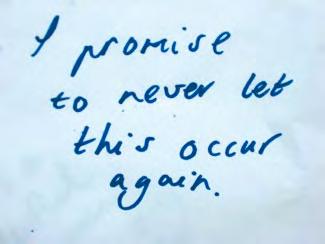 I promise
to never let
this occur
again.